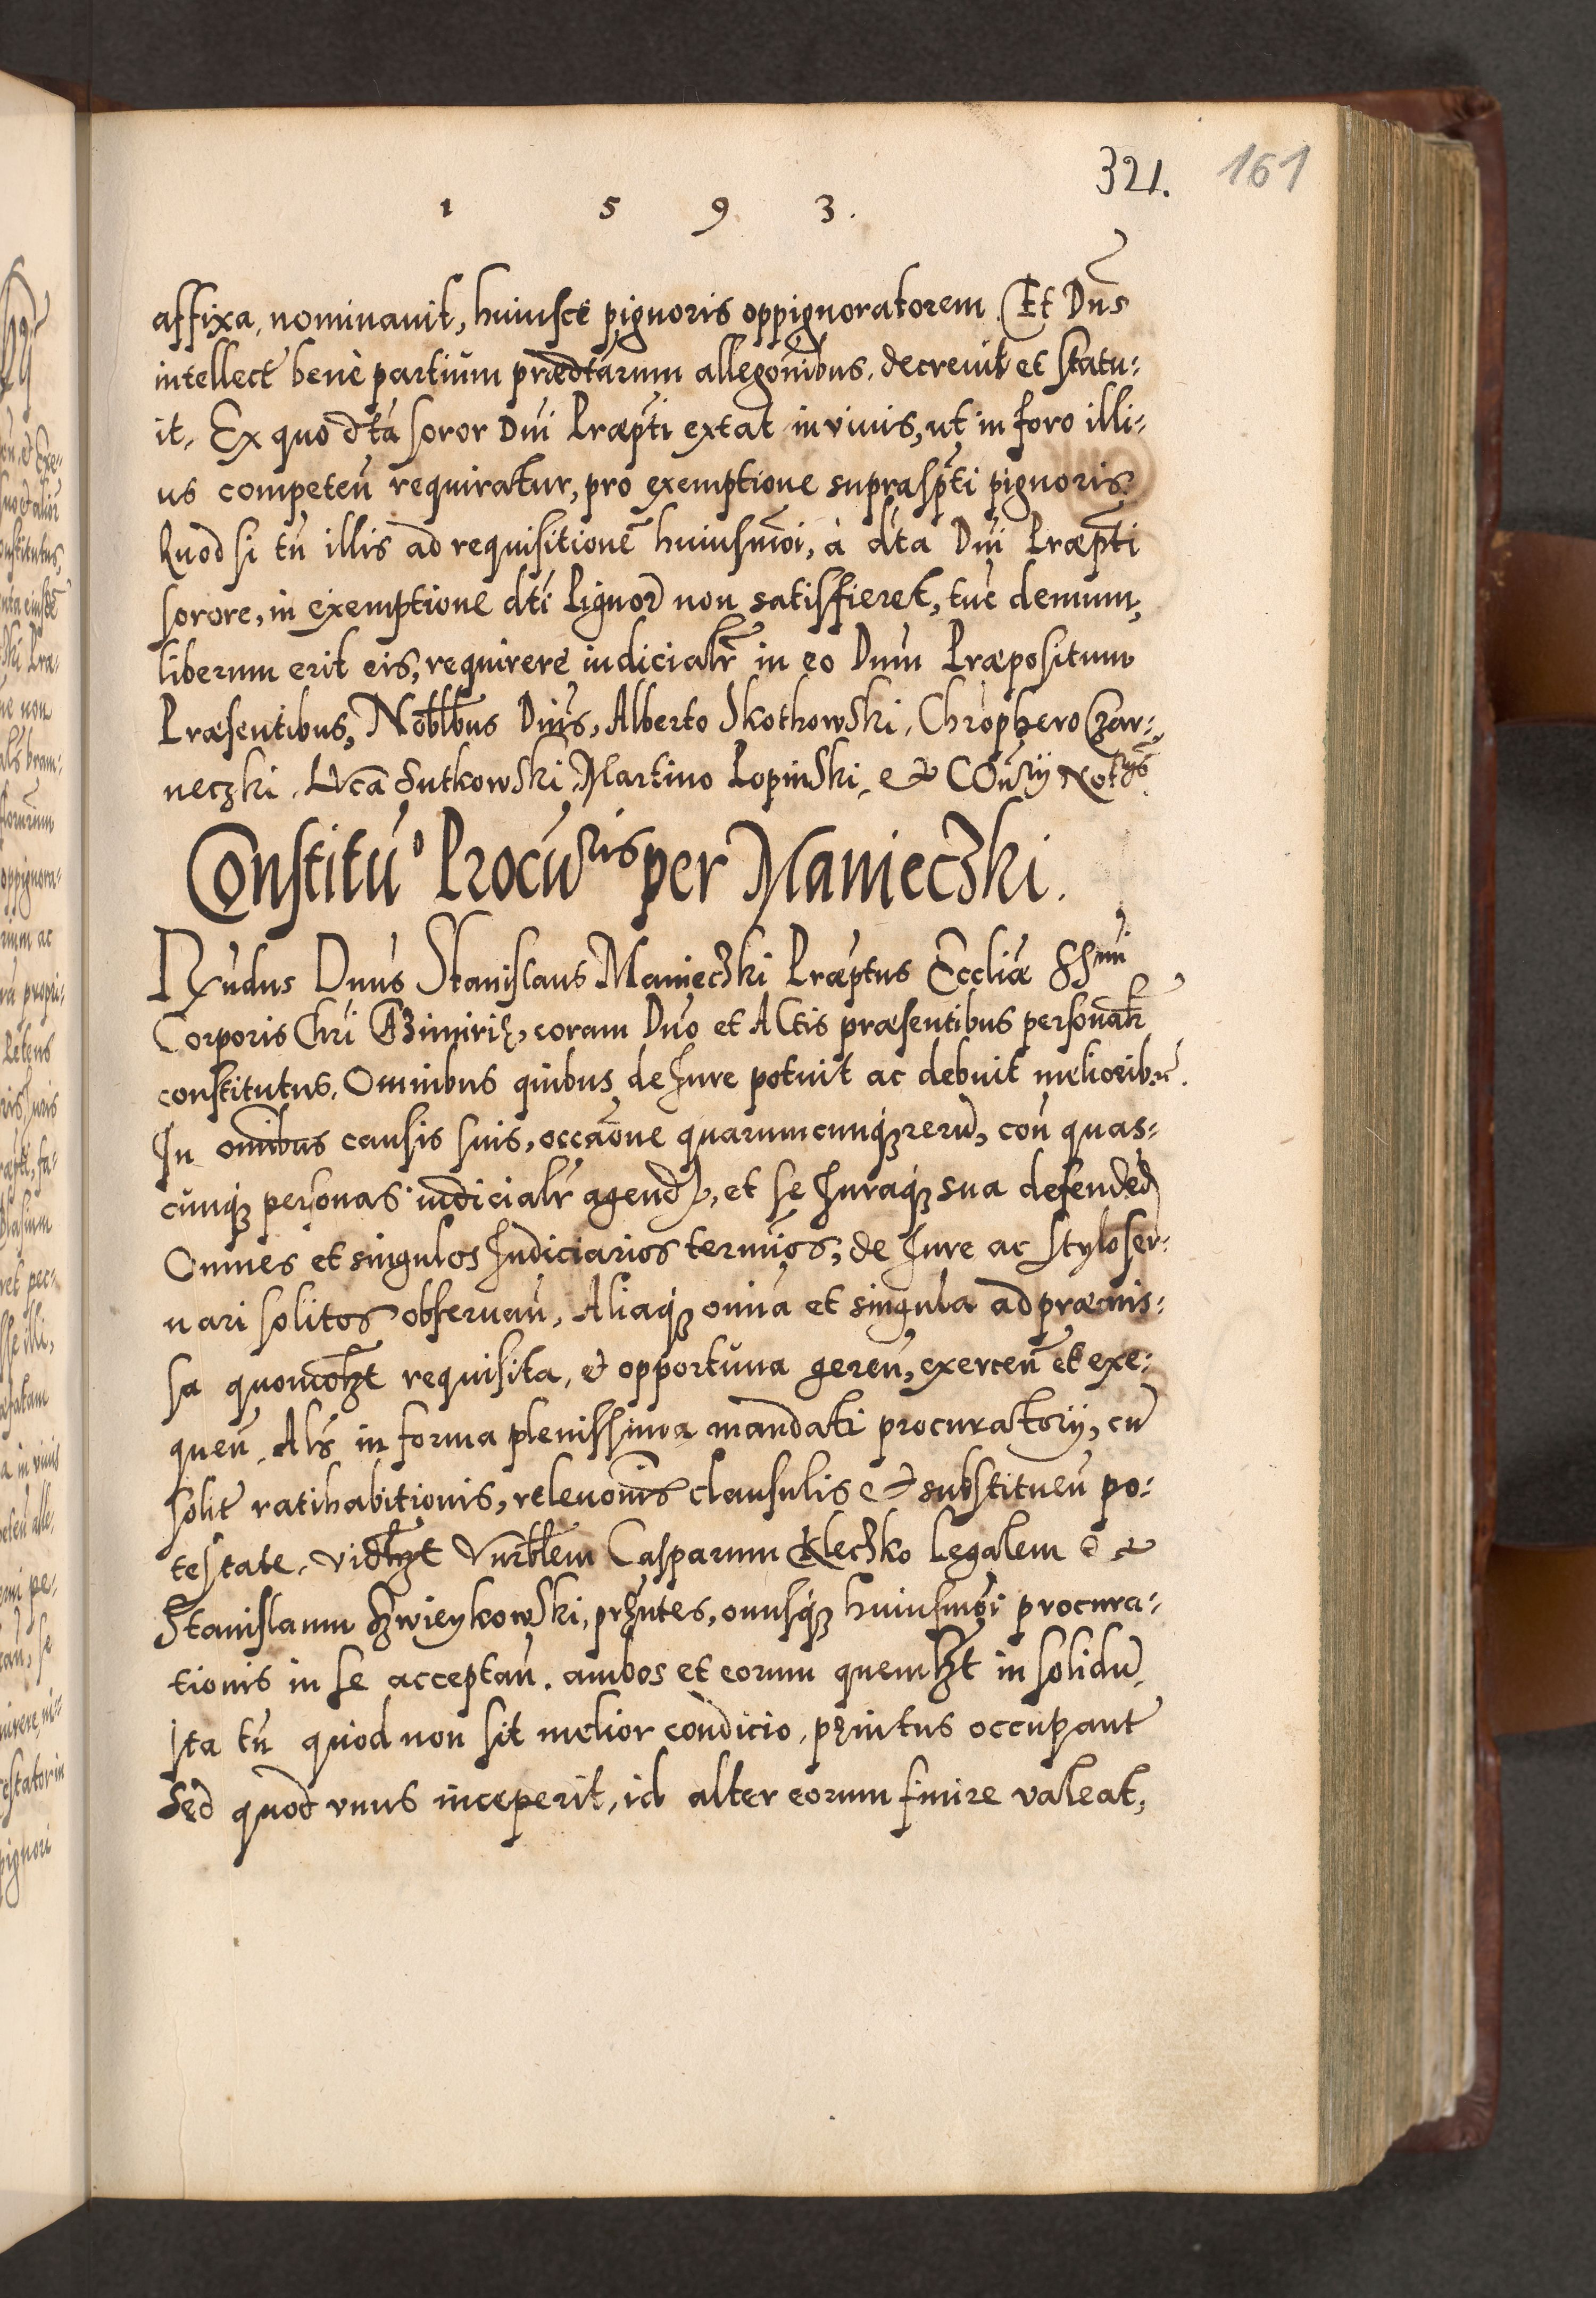 321. 161
1 5 9 3.
affixa, nominauit, huiusce pignoris oppignoratorem. Et Dn̄s
intellect̄ benè partium prædtārum allegōnibus, decreuit et statu:
it, Ex quo dtā soror Dn̄i Præpti extat in viuis, ut in foro illi:
us competeñ requiratur, pro exemptione supraspt̄i pignoris.
Quod si tn̄ illis ad requisitionē huiusmōi, à dtā Dn̄i Præpt̄i
sorore, in exemptione dtī Pignor̄ non satisfieret, tuc̄ demum,
liberum erit eis, requirere iudicialr̄ in eo Dnm̄ Præpositum
Præsentibus, Nobłbus Dnīs, Alberto Skotkowski, Chrōphero Czar:
neczki, Lucā Sutkowski, Martino Lopinski, et COn̄rij Notrijs
Constitū° Procurīs per Manieczki.
Rx̄ndus Dnūs Stanislaus Manieczki Præptus Eccliæ SSmi
Corporis Chrī Cazimiriæ, coram Dnō et Actis præsentibus personałr
constitutus, Omnibus quibus de Jure potuit ac debuit melioribus.
In omībus causis suis, occāone quarumcunq̃ rerū, con̄ quas:
cunq̃ personas iudicialr̄ agend̄, et se Juraq̃ sua defended̄
Omnes et singulos Judiciarios termīos, de Jure ac stylo ser:
uari solitos obseruan̄, Aliaq̃ omīa et singula ad præmis:
sa quomōłzt requisita, et opportuna geren̄, exercen̄ et exe:
quen̄, Alīs in forma plenissima mandati procuratorij, cū
solit̄ ratihabitionis, releuonīs clausulis et substituen̄ po:
testate, vidłzt Vnrbłem Casparum Kleczko Legalem et
Stanislaum Szwieykowski, prn̄tes, onusq̃ huiusmōi procura:
tionis in se acceptan̄, ambos et eorum quemłzt in solidū
Ita tn̄ quod non sit melior condicio, prīntus occupant̄
Sed quod vnus inceperit, id alter eorum finire valeat,